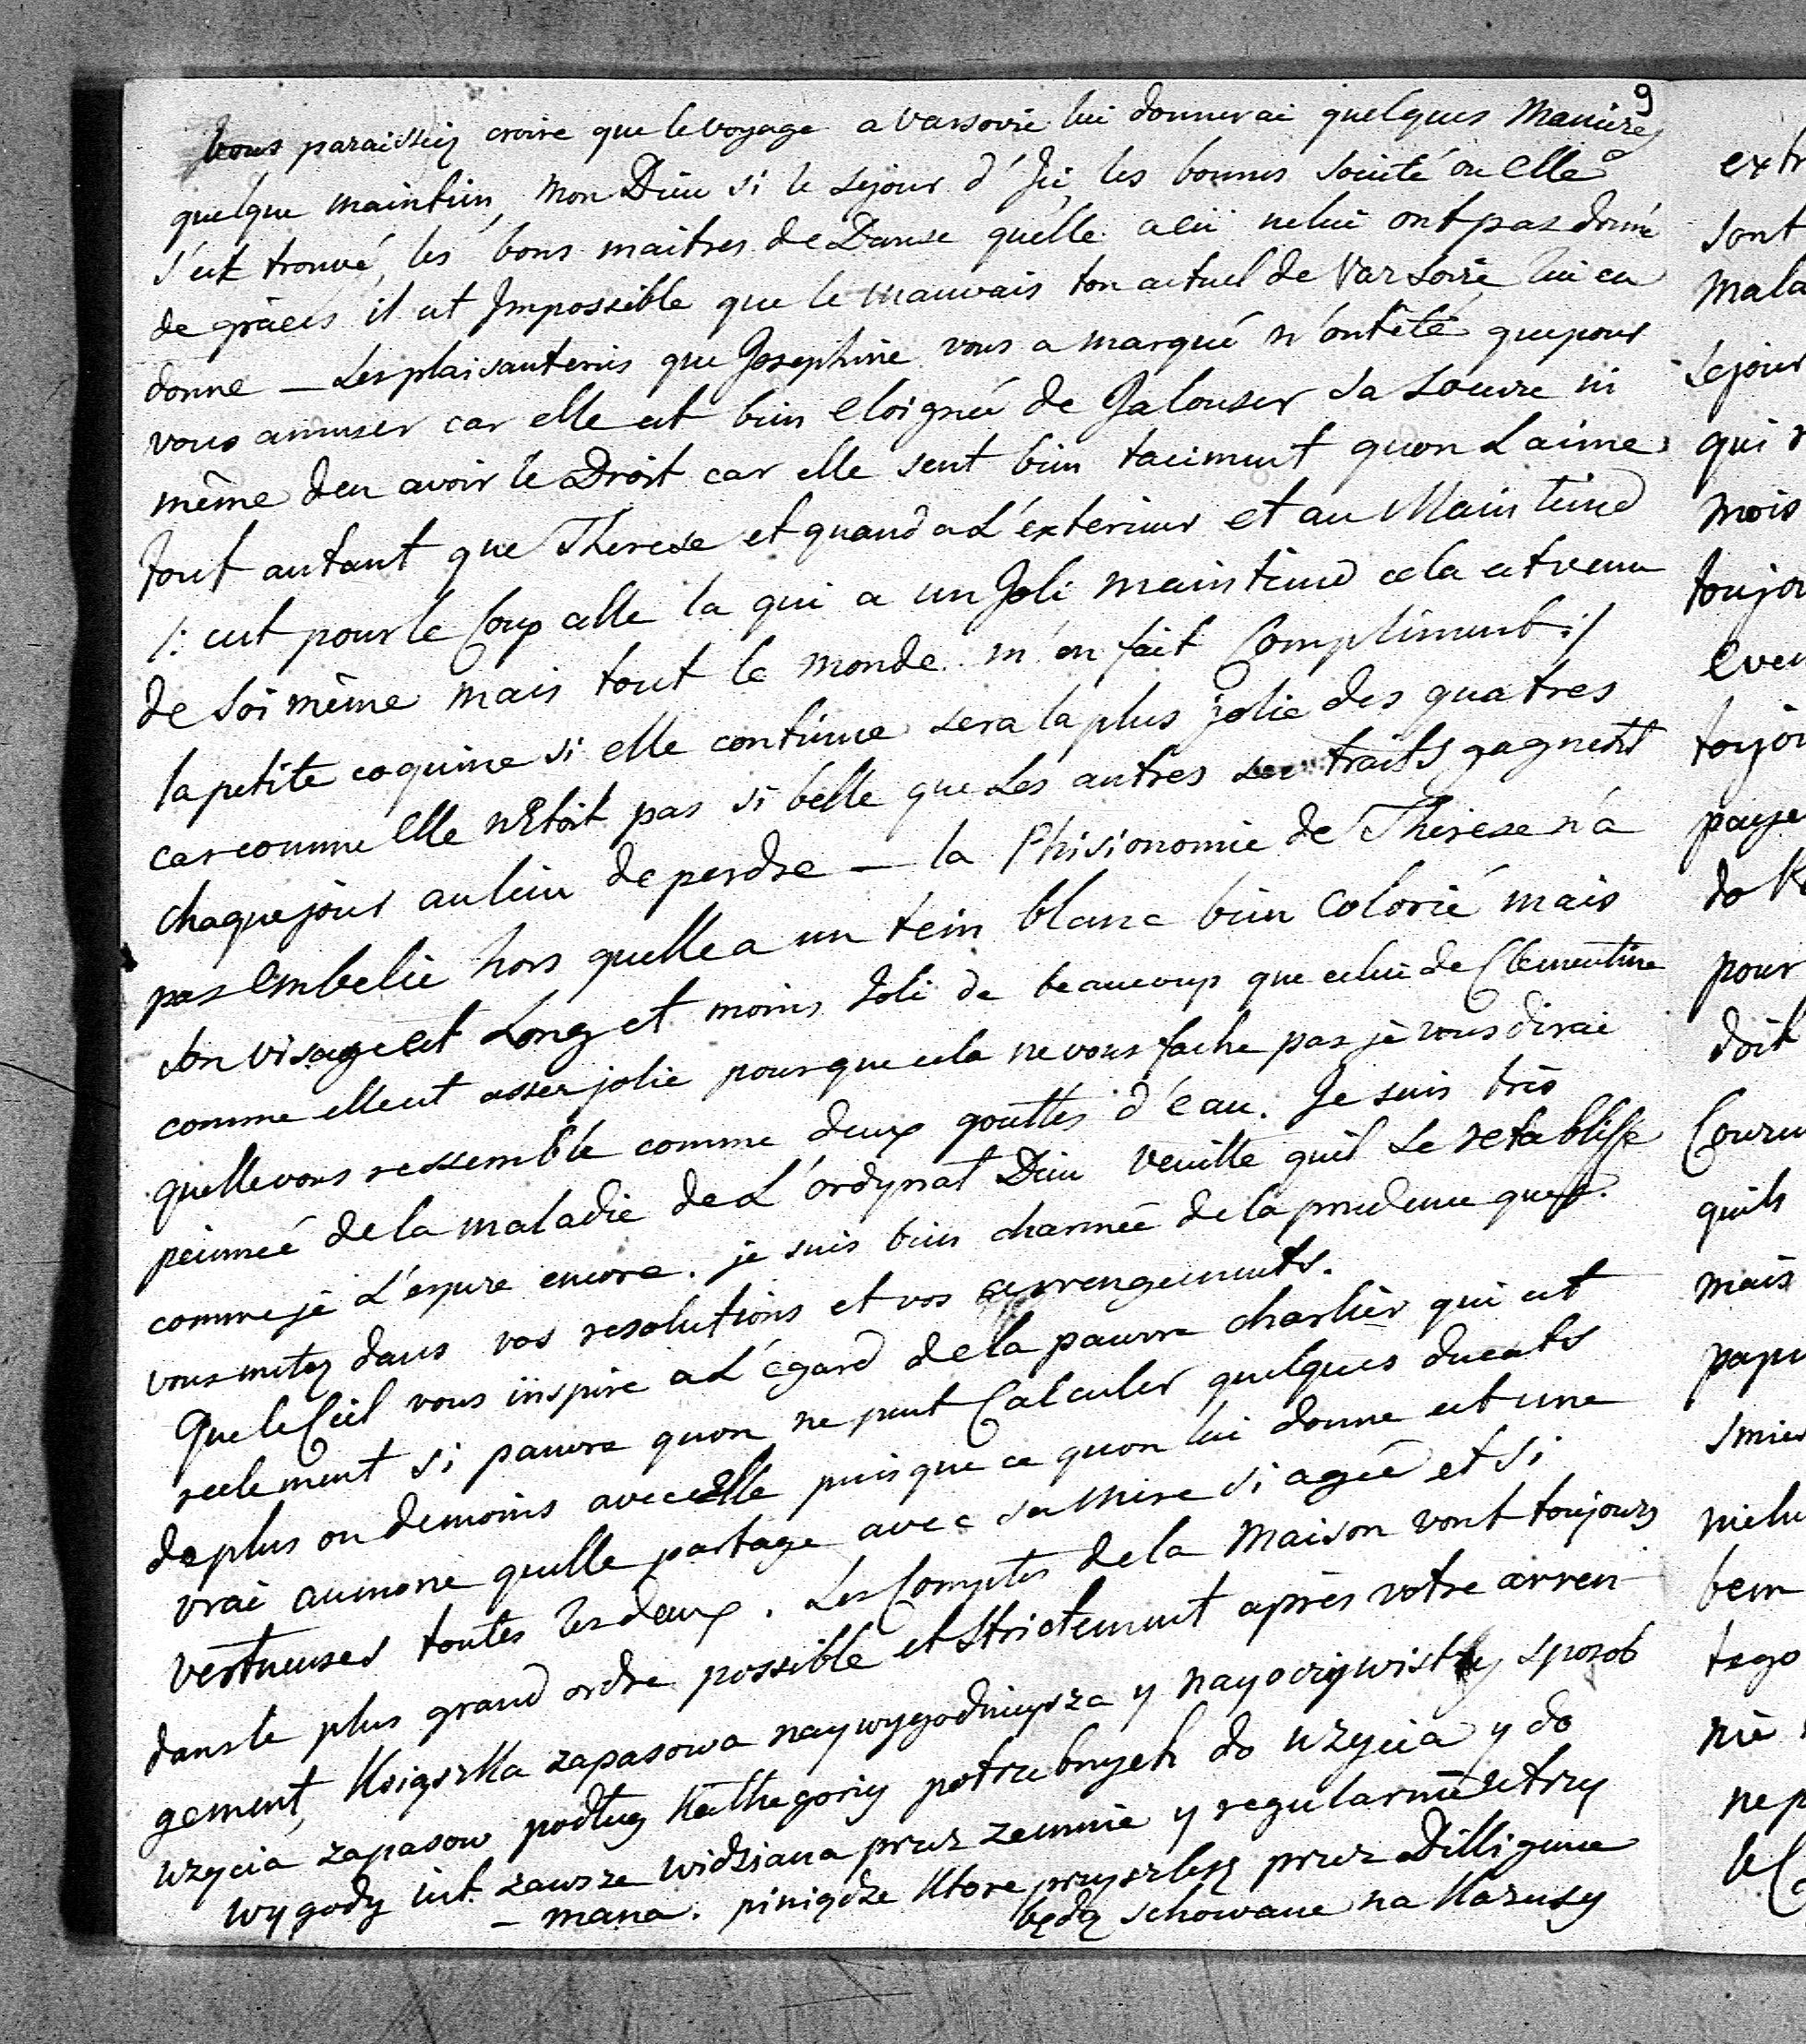 9
Vous paraissiez croire que le voyage a varsovie lui donnerai quelques Manieres
quelque maintien, Mon Dieu si le sejour d'Ici, les bonnes societé ou elle
s'est trouvé, les bons maitres de Danse quélle a eü ne lui ont pas donné
de gràces il est Impossible que le mauvais ton actuel de Varsovie lui en
donne — Les plaisanteries que Josephine vous a marqué n'ont été que pour
vous amuser car elle est bien eloignée de Jalouser sa soeure ni
même d'en avoir le Droit car elle sent bien tacimet quon L'aime
tout autant que Therese et quand a L'exterieur et au Maintiend
/: cest pour le Coup celle la qui a un Joli maintiend cela est venu
de soi même mais tout le monde m'en fait Compliment :/
la petite coquine si elle continue sera la plus jolie des quatres
car comme elle n'Etoit pas si belle que Les autres ses traits gagnent
chaque jour au lieu de perdre — la Phisionomie de Therese n'a
pas embelie hors quelle a un tein blanc bien Colorié mais
son visage est Long et moins Joli de beaucoup que celui de Clementine
comme elle est assez jolie pour que cela ne vous fache pas je vous dirai
quelle vous ressemble comme deux gouttes d'eau. Je suis très
peinneé de la maladie de L'ordynat Dieu veuille quil se retablisse
comme je L'espere encore. je suis bien charmée de la prudence que
vous metez dans vos resolutions et vos arrengements.
Que le Ciel vous inspire a L'égard de la pauvre charlier qui est
reelement si pauvre quon ne peut Calculer quelques ducats
de plus ou de moins avec Elle puisque ce quon lui donne est une
vrai aumone quelle partage avec sa mere si ageé et si
vertueuses toutes les deux. Les Comptes de la Maison vont toujours
dans le plus grand ordre possible et strictement après votre arren-
gement, Xsiąszka zapasowa naywygodnieysza y nayoczywistszy sposob
uzycia zapasow podług Kathegoriy potrzebnych do uzycia y do
wygody iest zawsze widziana przez zemnie y regularnie utrzy
- mana. pieniądze Ktore przyszlesz przez Dilligence
będą schowane na Karuzy
extr
sont
mala
sejour
qui
mois
toujou
even
toujou
paye
do
pour
doit
quils
mais
nielu
bem
tego
nie